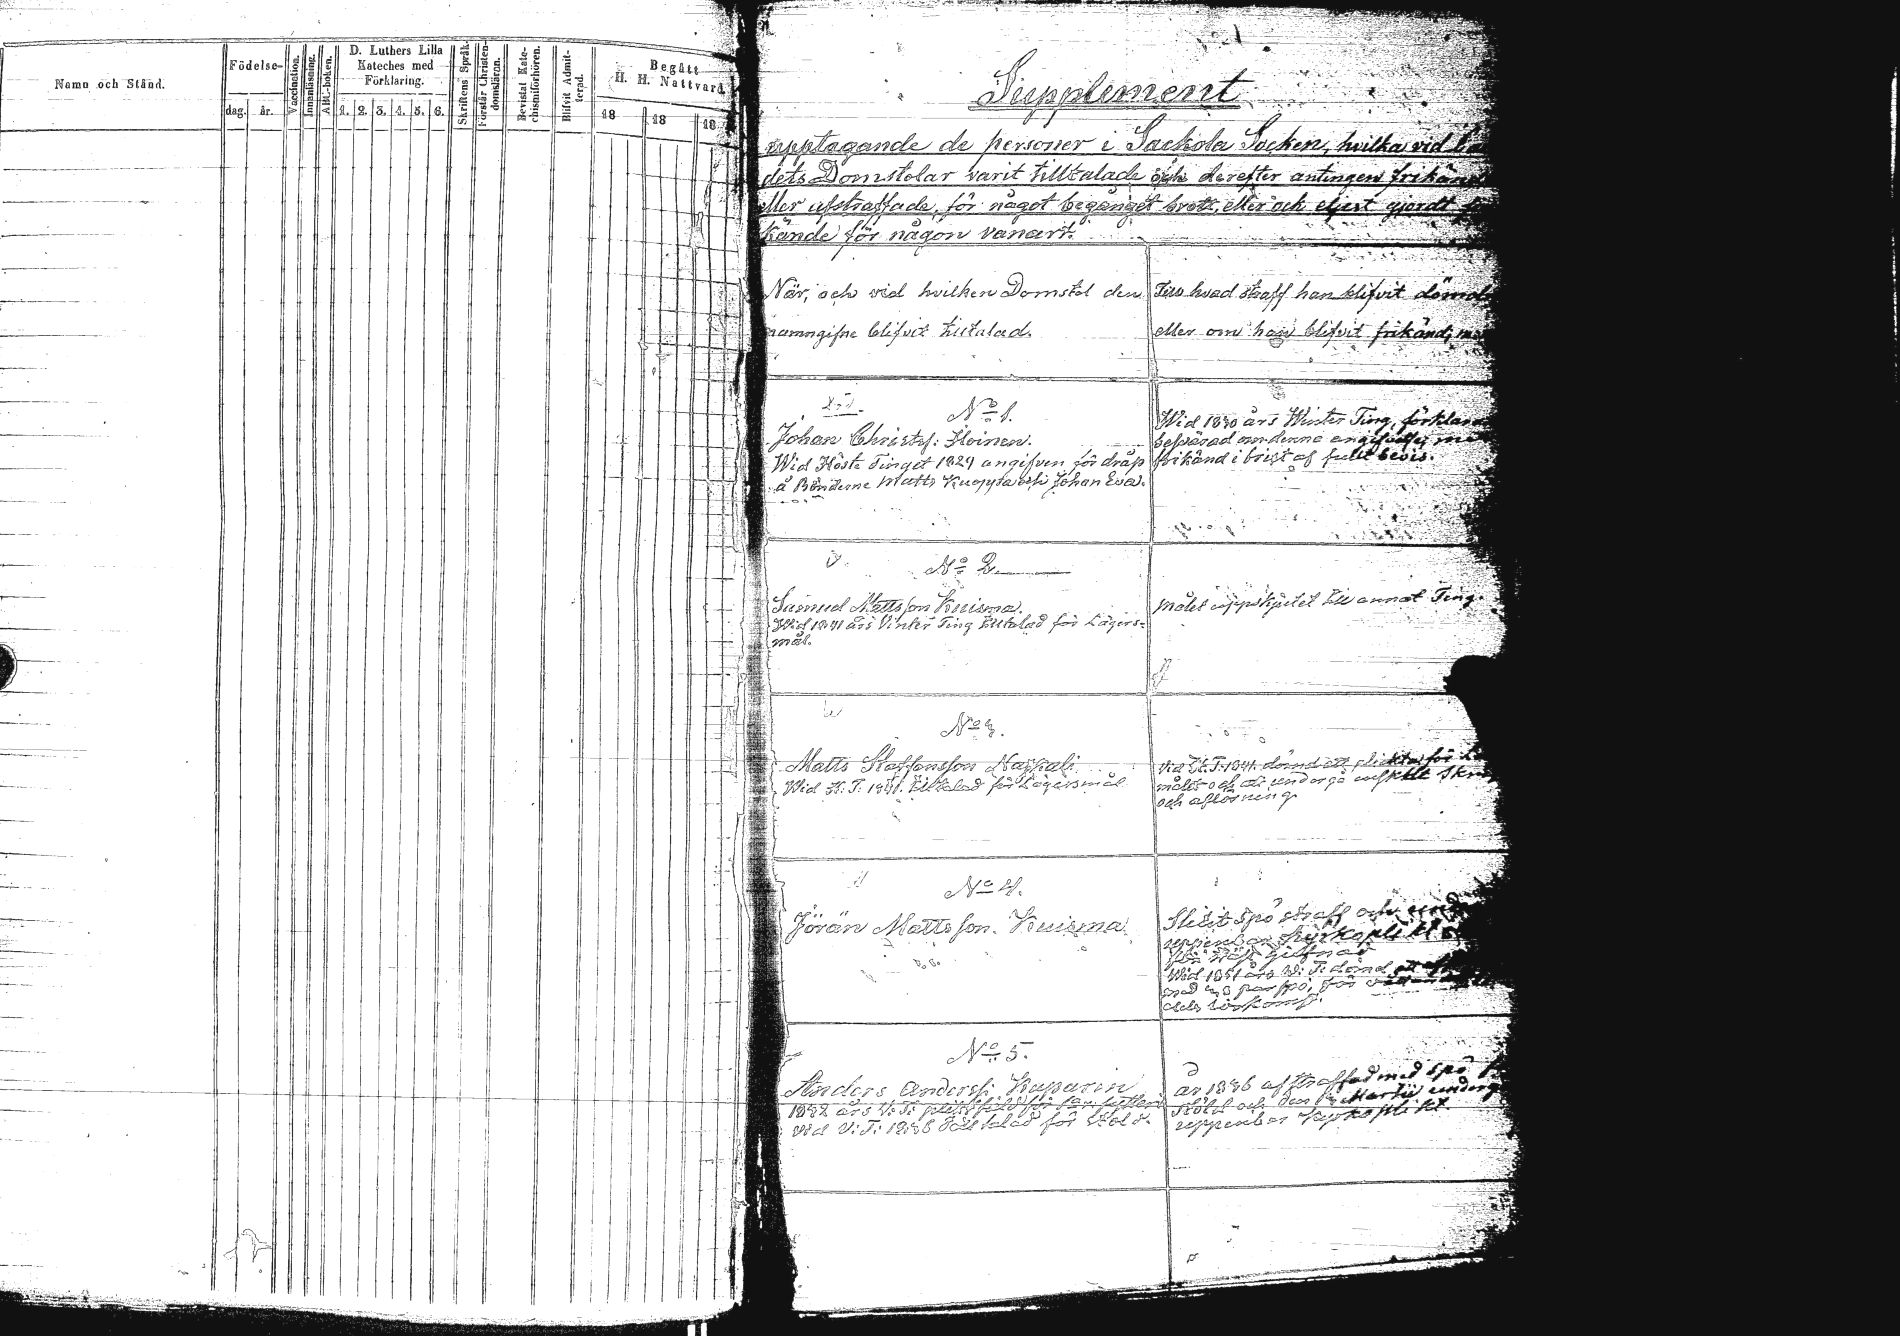 Namn och Stånd.
Födelse-
dag.
år.
Vaccination.
Innanläsning.
ABC-boken.
D. Luthers Lilla
Kateches med
Förklaring.
1. 2. 3. 4. 5. 6.
Skriftens Språk.
Förstår Christen-
domsläran.
Bevistat Kate-
chismiförhören.
Blifvit Admit-
terad.
Begått
H. H. Nattvard.
18 18 18
Supplement
upptagande de personer i Sackola Socken, hvilka vid
dets Domstolar varit tilltalade och derefter antingen frikände
eller afstraffade, för något begånget brott, eller och eljest gjordt
kände för någon vanart.
När, och vid hvilken Domstol den
namngifne blifvit tilltalad.
Till hvad straff han blifvit dömd
eller om han blifvit frikänd,
No 1.
Johan Christof. Hoinen.
Wid Höste Tinget 1829 angifven för dråp
å Bönderne Matts Kuoppa och Johan Eva.
Wid 1830 års Winter Ting, förklarad
besvärad om denna angifvelse,
frikänd i brist af fullt bevis.
No 2
Samuel Mattsson Kuisma.
Wid 1841 års Vinter Ting tilltalad för Lägers-
mål.
målet uppskjutet till annat Ting.
No 3.
Matts Staffansson Naskali
Wid H. T. 1841. tilltalad för Lägersmål
vid H. T. 1841. dömd att plikta för
måls och att undergå enskilt
och aflösning
No 4.
Jörän Mattsson Kuisma
Slitit spö straff och
uppenbar kyrkoplikt
Wid 1851 års W. T. dömd att
med par spö, för
No 5.
Anders Anderss. Kuparin
1832 års V. T.
vid V. T. 1836 tilltalad för stöld.
år 1836 afstraffad med spö
stöld och den Martii
uppenbar kyrkoplikt.